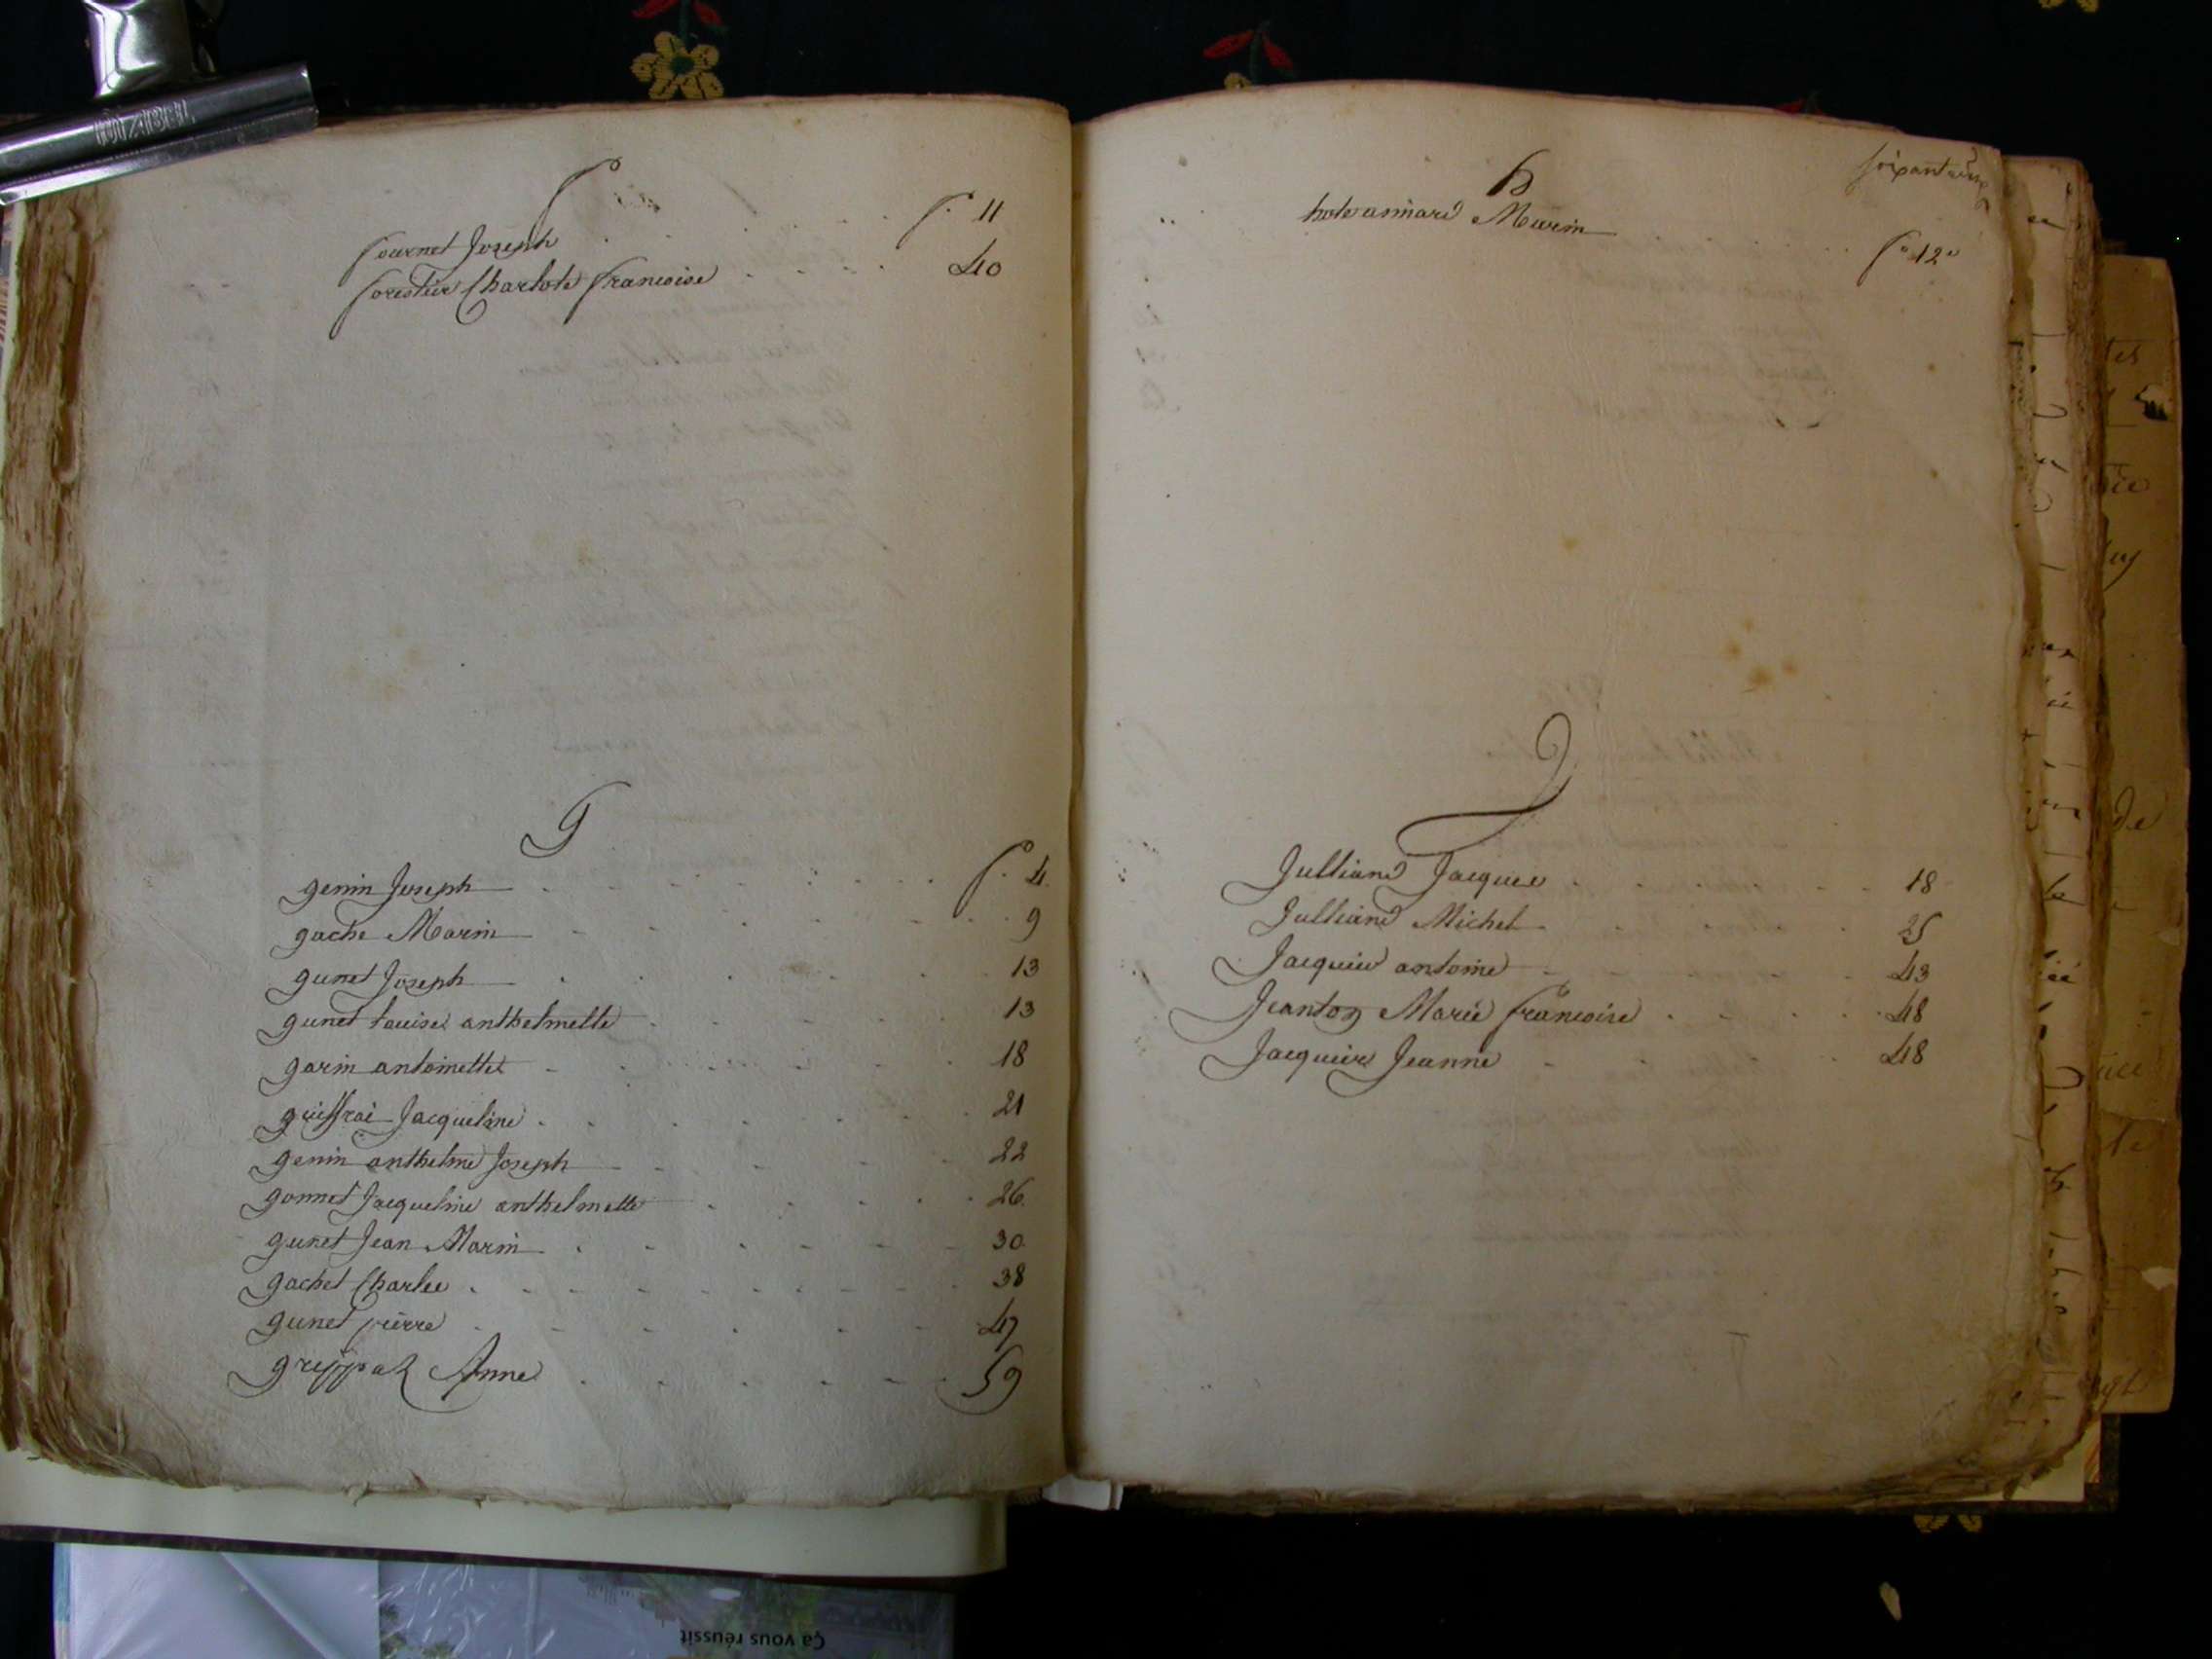 f
fournet Joseph . . . . . fo. 11
forestier Charlote francoise . . . . 40
G
genin Joseph . . . . . . . fo. 4.
gache Marin . . . . . 9
gunet Joseph . . . . . 13
gunet Louise anthelmette . . . . 13
garin antoinette . . . . . 18
guiffrai Jacqueline . . . . . 21
genin anthelme Joseph . . . . 22
gonnet Jacqueline anthelmette . . . . 26.
gunet Jean Marin . . . . . 30.
gachet Charles . . . . . . . 38
gunet pierre . . . . . . 47
greppat Anne . . . . . . 59
h
hote annard Marin . . . . fo 12
J
Julliand Jacques . . . . . 18
Julliand Michel . . . . 25
Jacquier antoine . . . . 43
Jeanton Marie francoise . . . . 48
Jacquier Jeanne . . . . 48
Ça vous réussit